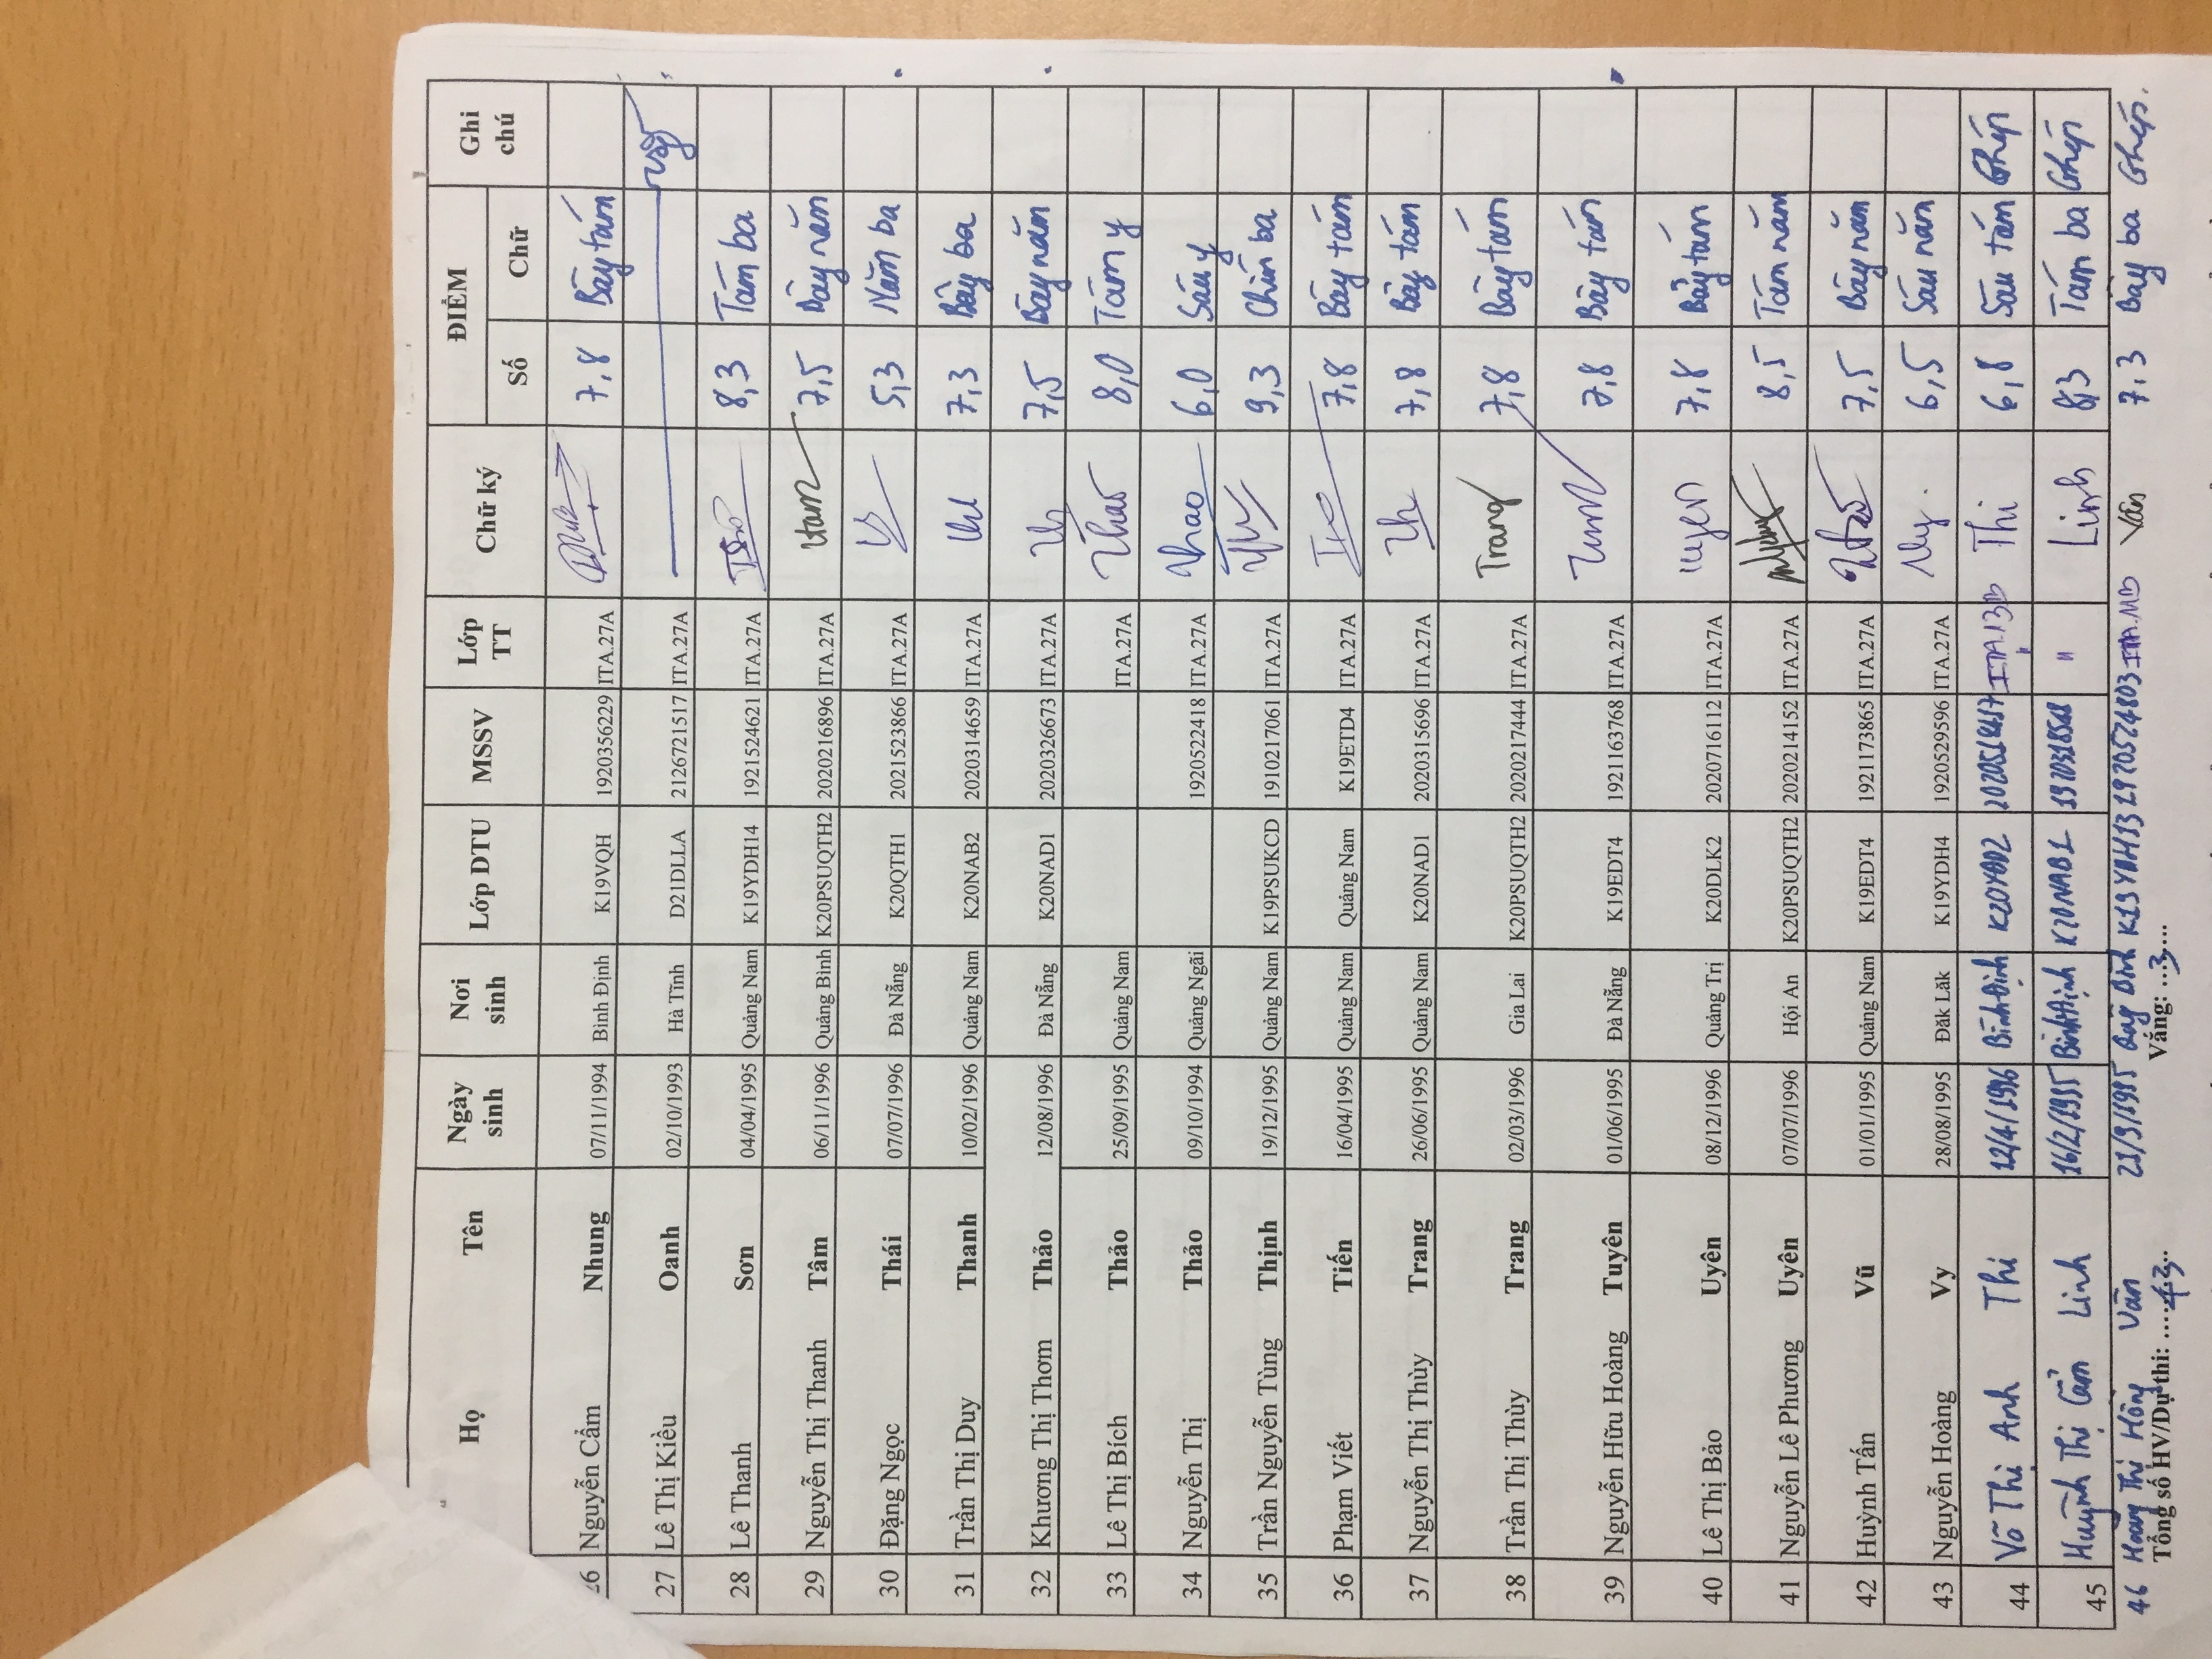 Họ Tên Ngày sinh Nơi sinh Lớp DTU MSSV Lớp TT Chữ ký ĐIỂM Ghi chú
Số Chữ
26 Nguyễn Cẩm Nhung 07/11/1994 Bình Định K19VQH 1920356229 ITA.27A 7,8 Bảy tám
27 Lê Thị Kiều Oanh 02/10/1993 Hà Tĩnh D21DLLA 2126721517 ITA.27A vắng
28 Lê Thanh Sơn 04/04/1995 Quảng Nam K19YDH14 1921524621 ITA.27A 8,3 Tám ba
29 Nguyễn Thị Thanh Tâm 06/11/1996 Quảng Bình K20PSUQTH2 2020216896 ITA.27A 7,5 Bảy năm
30 Đặng Ngọc Thái 07/07/1996 Đà Nẵng K20QTH1 2021523866 ITA.27A 5,3 Năm ba
31 Trần Thị Duy Thanh 10/02/1996 Quảng Nam K20NAB2 2020314659 ITA.27A 7,3 Bảy ba
32 Khương Thị Thơm Thảo 12/08/1996 Đà Nẵng K20NAD1 2020326673 ITA.27A 7,5 Bảy năm
33 Lê Thị Bích Thảo 25/09/1995 Quảng Nam ITA.27A Thảo 8,0 Tám y
34 Nguyễn Thị Thảo 09/10/1994 Quảng Ngãi 1920522418 ITA.27A Thao 6,0 Sáu y
35 Trần Nguyễn Tùng Thịnh 19/12/1995 Quảng Nam K19PSUKCD 1910217061 ITA.27A 9,3 Chín ba
36 Phạm Viết Tiến 16/04/1995 Quảng Nam Quảng Nam K19ETD4 ITA.27A 7,8 Bảy tám
37 Nguyễn Thị Thùy Trang 26/06/1995 Quảng Nam K20NAD1 2020315696 ITA.27A 7,8 Bảy tám
38 Trần Thị Thùy Trang 02/03/1996 Gia Lai K20PSUQTH2 2020217444 ITA.27A Trang 7,8 Bảy tám
39 Nguyễn Hữu Hoàng Tuyên 01/06/1995 Đà Nẵng K19EDT4 1921163768 ITA.27A 7,8 Bảy tám
40 Lê Thị Bảo Uyên 08/12/1996 Quảng Trị K20DLK2 2020716112 ITA.27A uyên 7,8 Bảy tám
41 Nguyễn Lê Phương Uyên 07/07/1996 Hội An K20PSUQTH2 2020214152 ITA.27A 8,5 Tám năm
42 Huỳnh Tấn Vũ 01/01/1995 Quảng Nam K19EDT4 1921173865 ITA.27A 7,5 Bảy năm
43 Nguyễn Hoàng Vy 28/08/1995 Đăk Lăk K19YDH4 1920529596 ITA.27A Vy 6,5 Sáu năm
44 Võ Thị Anh Thi 12/4/1996 Bình Định ITA.13B Thi 6,8 Sáu tám Ghép
45 Huỳnh Thị Cẩm Linh 16/2/1995 Bình Định K20NAB1 " Linh 8,3 Tám ba Ghép
46 Hoàng Thị Hồng Vân 21/9/1995 K19YDH13 1920524803 Vân 7,3 Bảy ba Ghép.
Tổng số HV/Dự thi: ...43... Vắng: ...3...